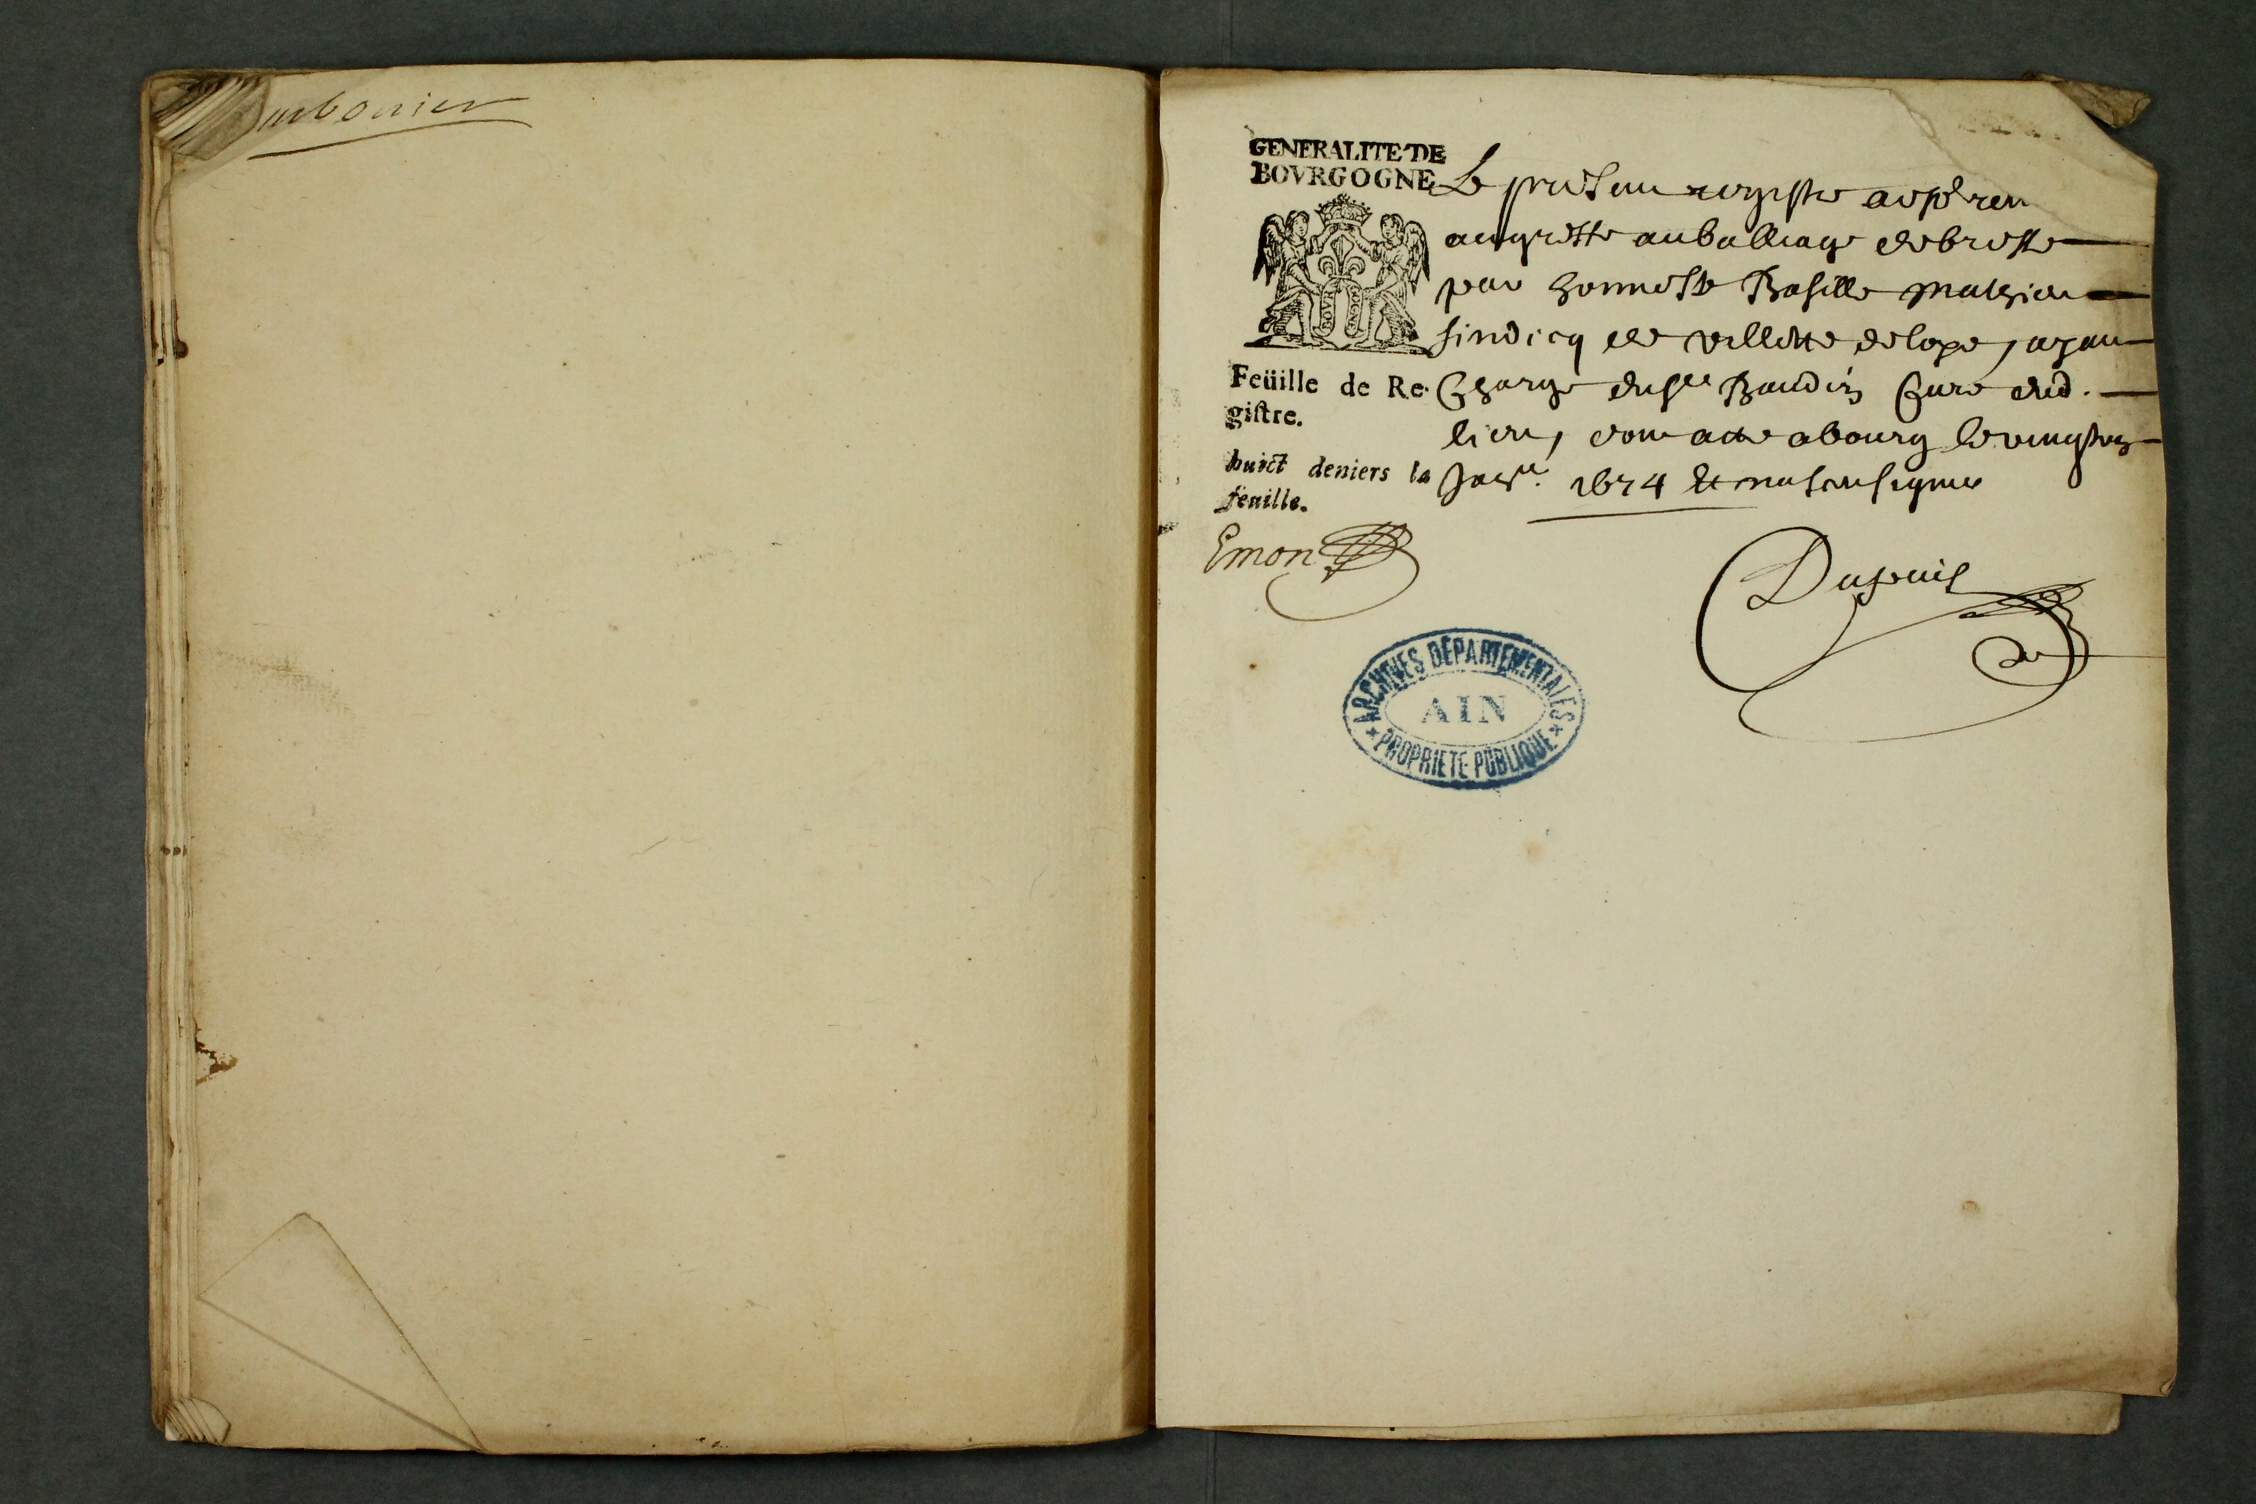 GENERALITE DE
BOVRGOGNE
Feüille de Re-
giſtre.
huict deniers la
feuille.
Emon
Le present registre a esté
au greffe au balliage de bresse
par honneste Basille Mathieu
sindicq de villette de loye, ayant
Charge du sr Baudin Curé dud.
lieu, dont acte a bourg le vingt
Janr. 1674 Et me suis soussigné
Dupuis
ARCHIVES DÉPARTEMENTALES
AIN
PROPRIETE PUBLIQUE